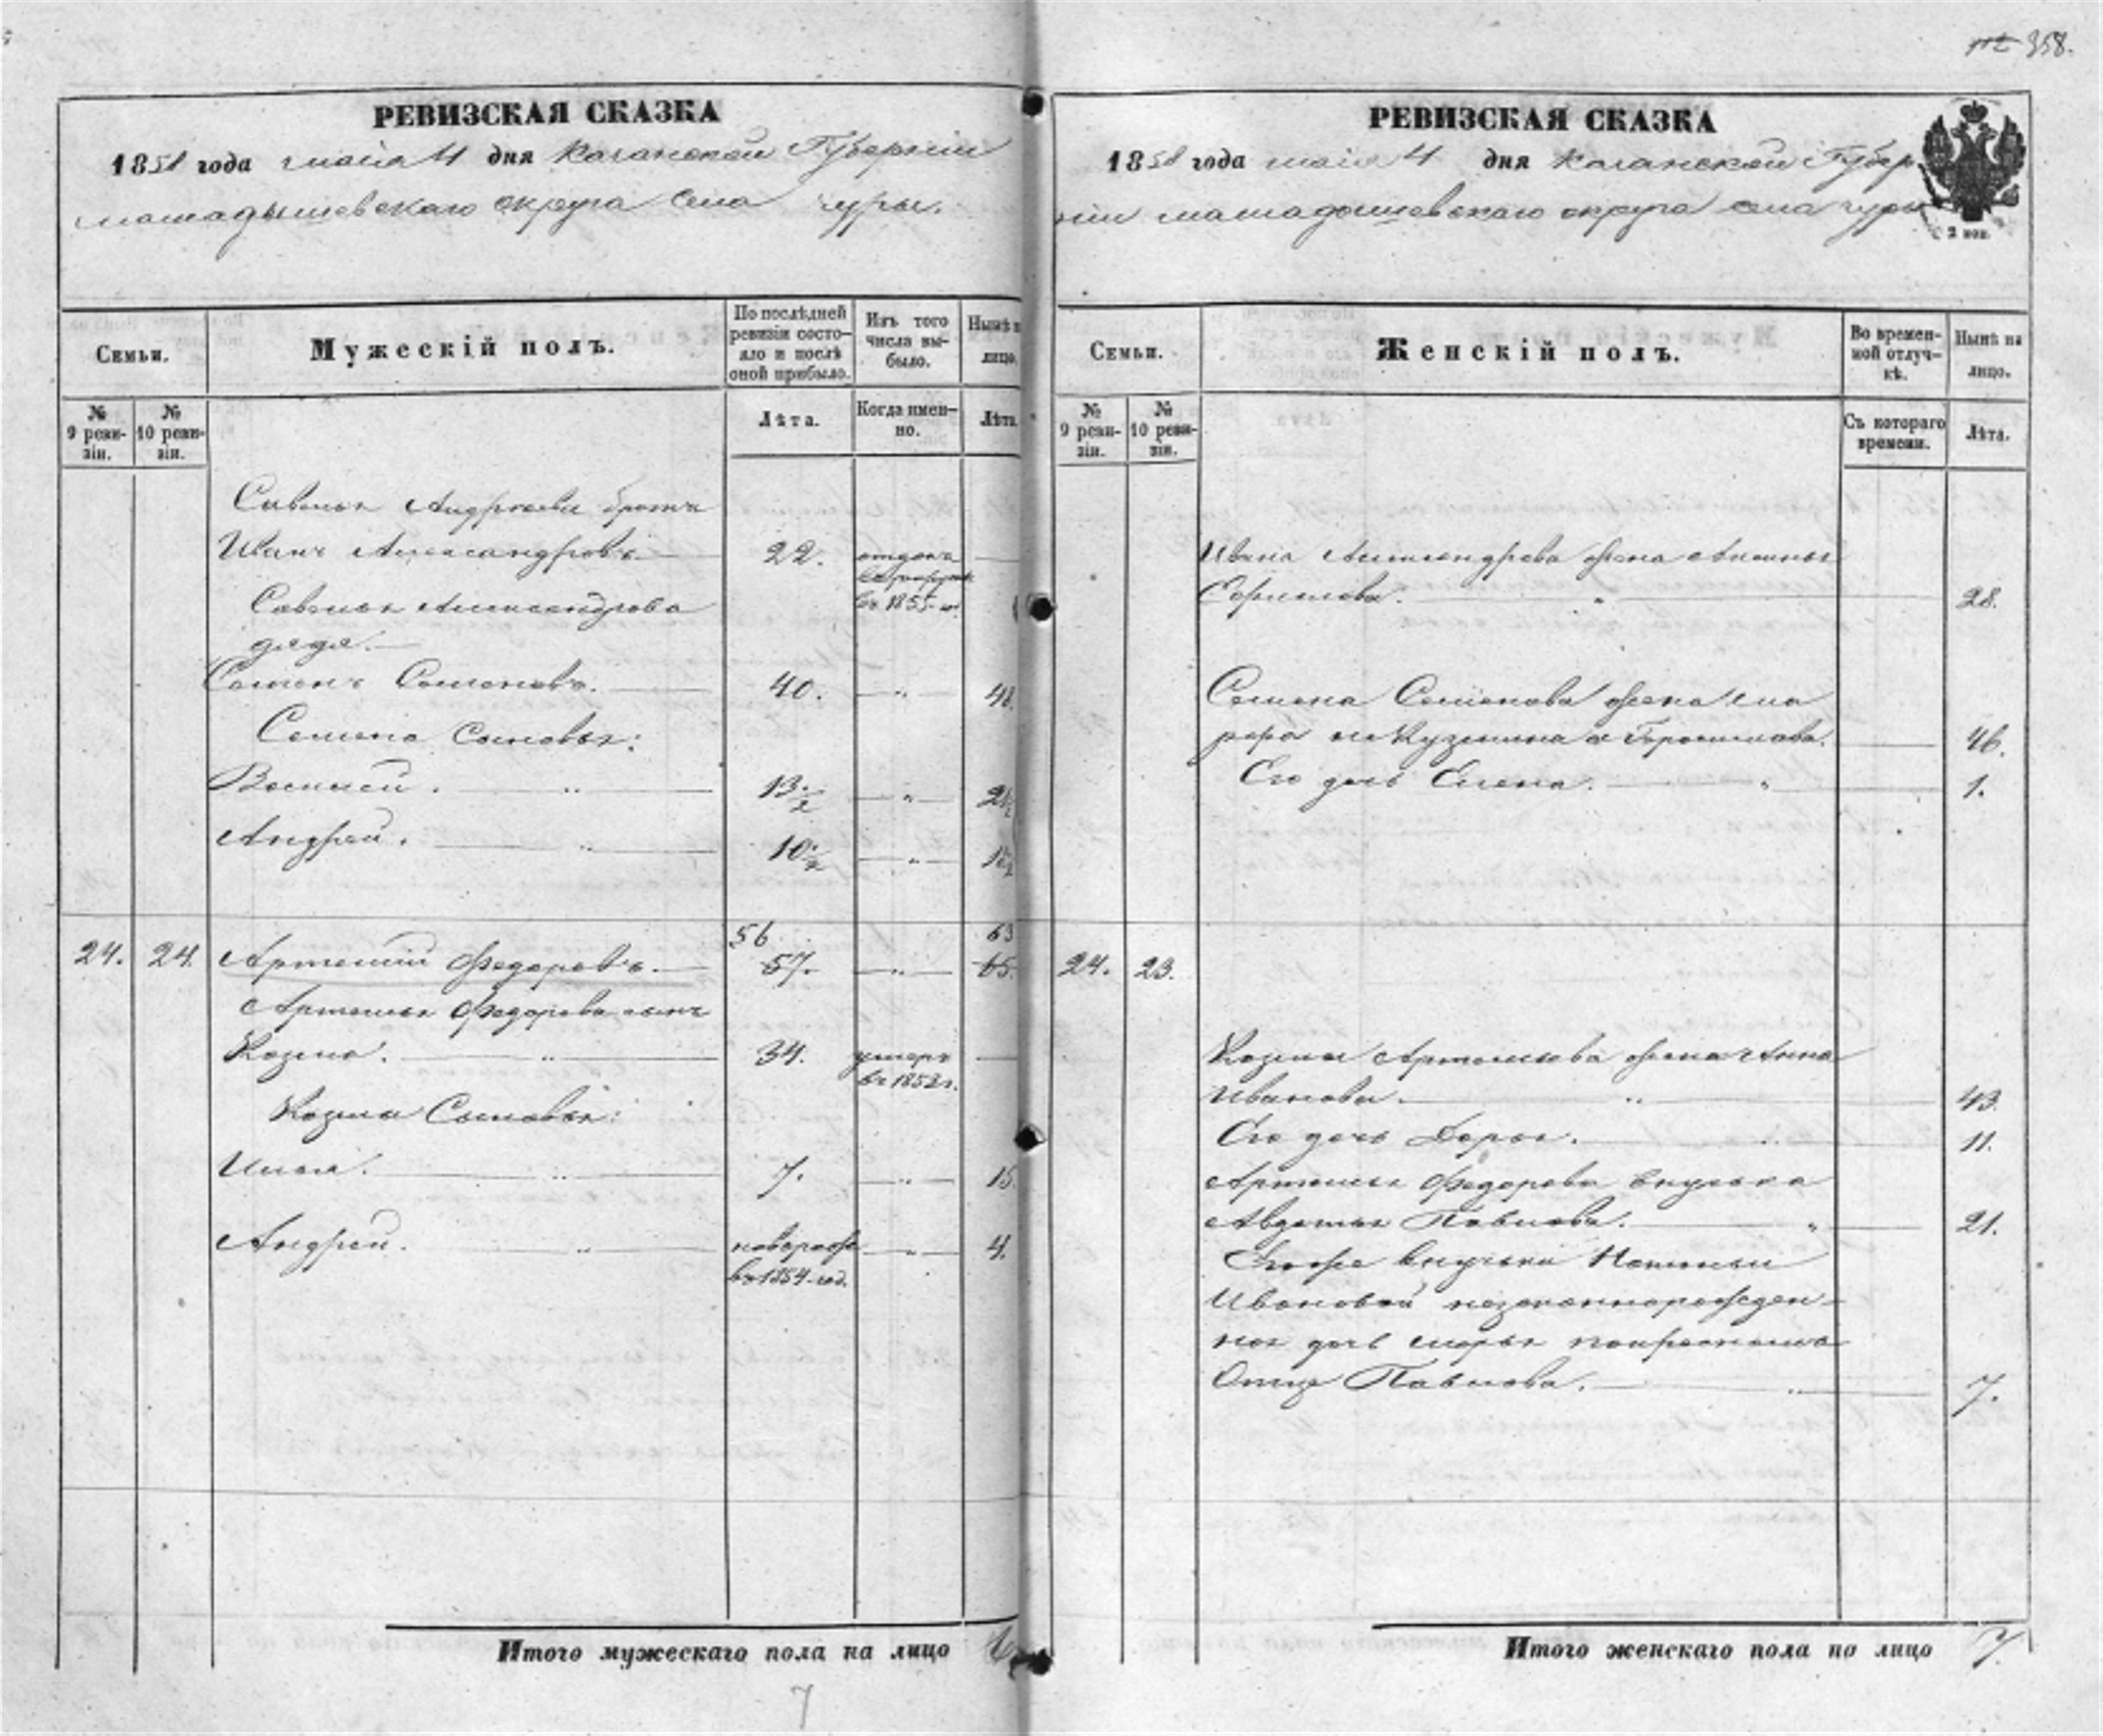 358.
РЕВИЗСКАЯ СКАЗКА
1858 года маія 4 дня Казанской Губерніи
мамадышевскаго округа села чуры.
Семьи.
Мужескій полъ.
По послѣдней ревизіи состояло и послѣ оной прибыло.
Изъ того числа выбыло.
Нынѣ на лицо.
№ 9 ревизіи.
№ 10 ревизіи.
Лѣта.
Когда именно.
Лѣта.
Савелья Андреева братъ
Иванъ Александровъ. 22. отданъ
въ рекруты
въ 1855 г.
Савелья Александрова
дядя.
Семенъ Семеновъ. 40. " 48.
Семена Сыновья:
Василей. " 13 1/2 " 21 1/2
Андрей. " 10 1/2 " 18 1/2
56 63
24. 24. Артемій Федоровъ. 57. " 65.
Артемья Федорова сынъ
Козма. " 34. умеръ
въ 1852 г.
Козмы Сыновья:
Илья. " 7. " 15.
Андрей. " новорож " 4.
въ 1854 год.
Итого мужескаго пола на лицо 6
7
РЕВИЗСКАЯ СКАЗКА
1858 года маія 4 дня Казанской Губер
ніи мамадышевскаго округа села чуры
2 коп.
Семьи.
Женскій полъ.
Во временной отлучкѣ.
Нынѣ на лицо.
№ 9 ревизіи.
№ 10 ревизіи.
Съ котораго времени.
Лѣта.
Ивана Александрова жена
28.
Семена Семенова жена
46.
Его дочь Елена. " 1.
24. 23.
Козмы Артемьева жена Анна
Иванова. " 43.
Его дочь Дарья. " 11.
Артемья Федорова внучка
Авдотья Павлова. " 21.
Егоже внучки
Ивановой незаконнорожден-
ная дочь Марья покрестному
Отцу Павлова. " 7.
Итого женскаго пола на лицо 7.